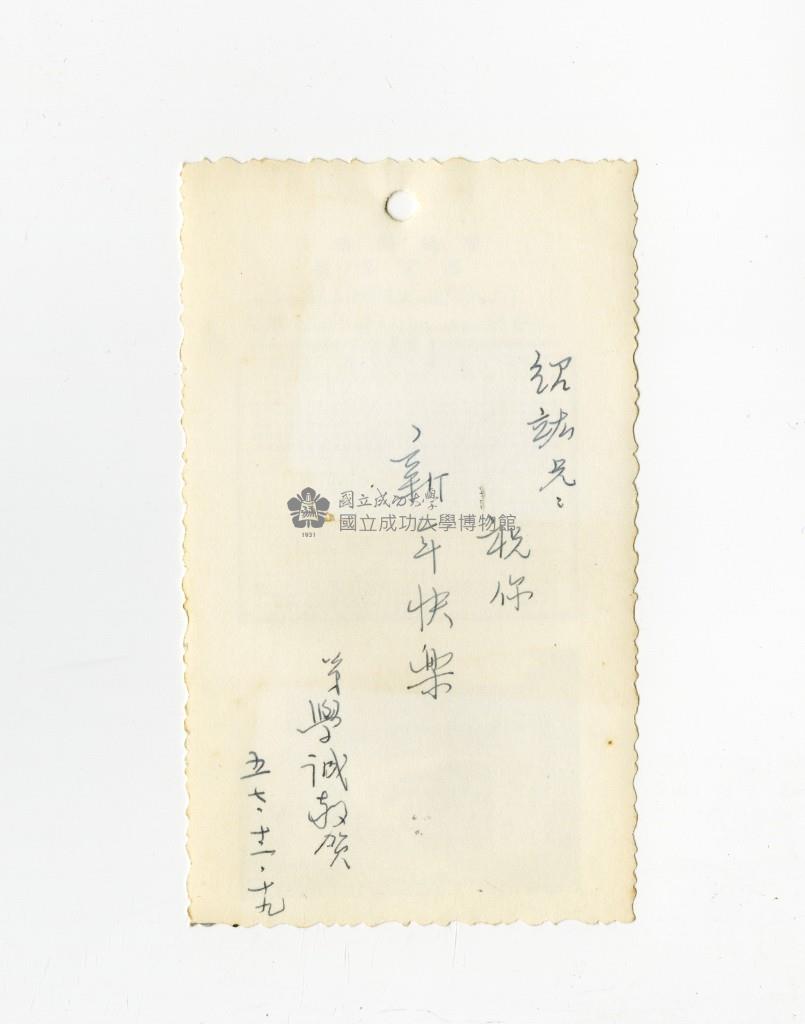 紹竑兄：
祝你
新年快樂
弟學誠敬賀
五七．十二．十九
國立成功大學
國立成功大學博物館
1931